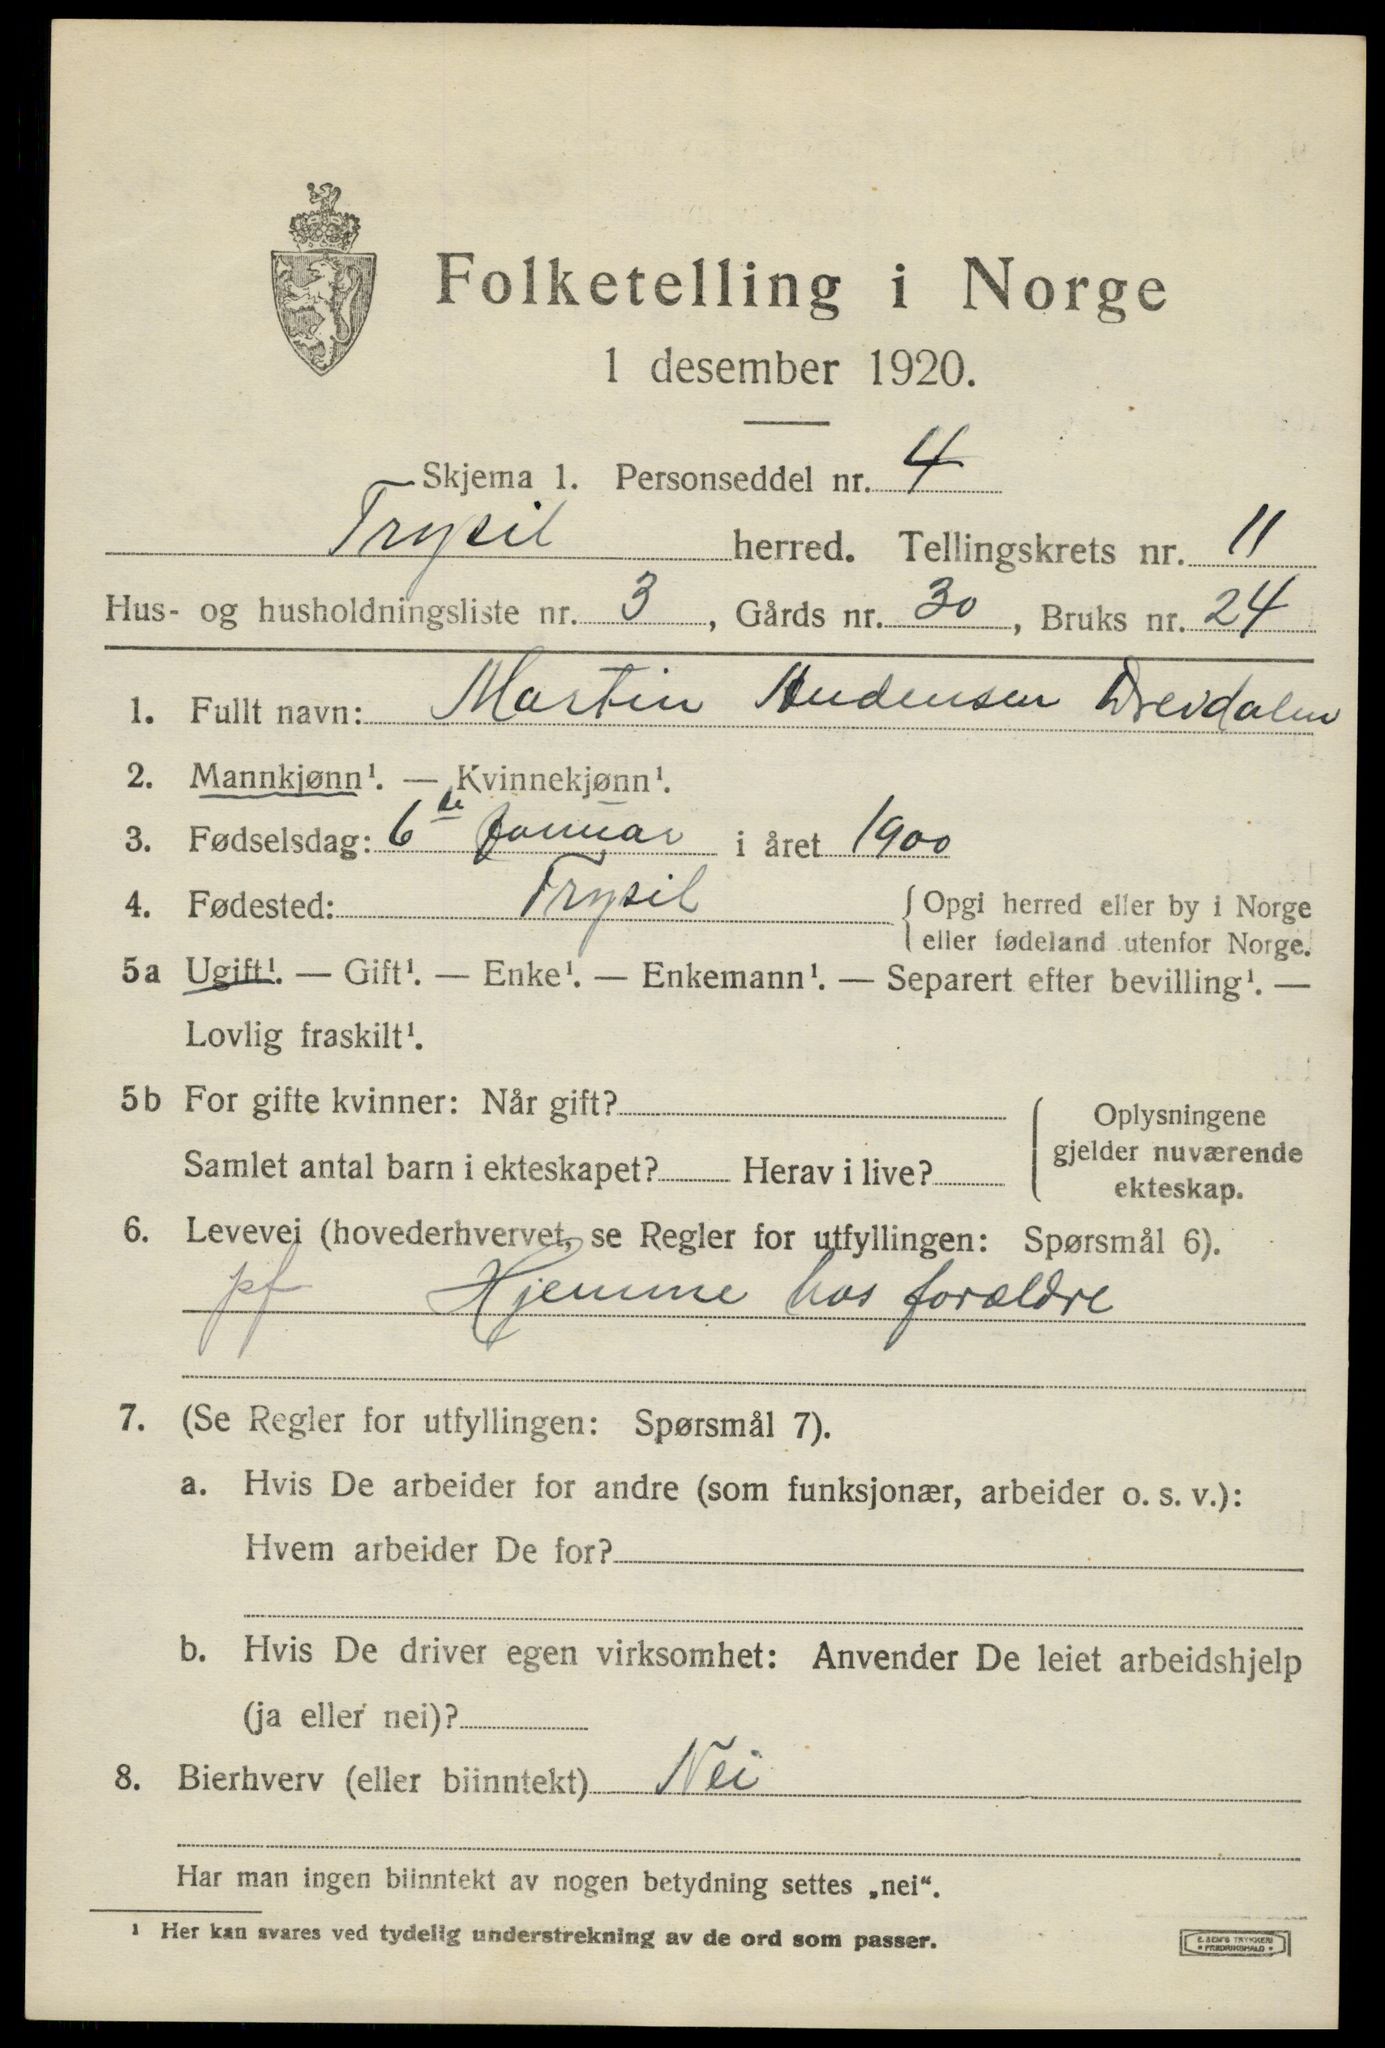 Folketelling i Norge
1 desember 1920.
Skjema 1. Personseddel nr. 4
Trysil herred. Tellingskrets nr. 11
Hus- og husholdningsliste nr. 3, Gårds nr. 30, Bruks nr. 24
1. Fullt navn: Martin Drevdalen
2. Mannkjønn¹. — Kvinnekjønn¹.
3. Fødselsdag: 6de Januar i året 1900
4. Fødested: Trysil {Opgi herred eller by i Norge
eller fødeland utenfor Norge.
5a Ugift¹. — Gift¹. — Enke¹. — Enkemann¹. — Separert efter bevilling¹. —
Lovlig fraskilt¹.
5b For gifte kvinner: Når gift?
Samlet antal barn i ekteskapet? Herav i live?
Oplysningene
gjelder nuværende
ekteskap.
6. Levevei (hovederhvervet, se Regler for utfyllingen: Spørsmål 6).
pf Hjemme hos forældre
7. (Se Regler for utfyllingen: Spørsmål 7).
a. Hvis De arbeider for andre (som funksjonær, arbeider o. s. v.):
Hvem arbeider De for?
b. Hvis De driver egen virksomhet: Anvender De leiet arbeidshjelp
(ja eller nei)?
8. Bierhverv (eller biinntekt) Nei
Har man ingen biinntekt av nogen betydning settes „nei“.
¹ Her kan svares ved tydelig understrekning av de ord som passer.
E. SEM'S TRYKKERI
• FREDRIKSHALD •